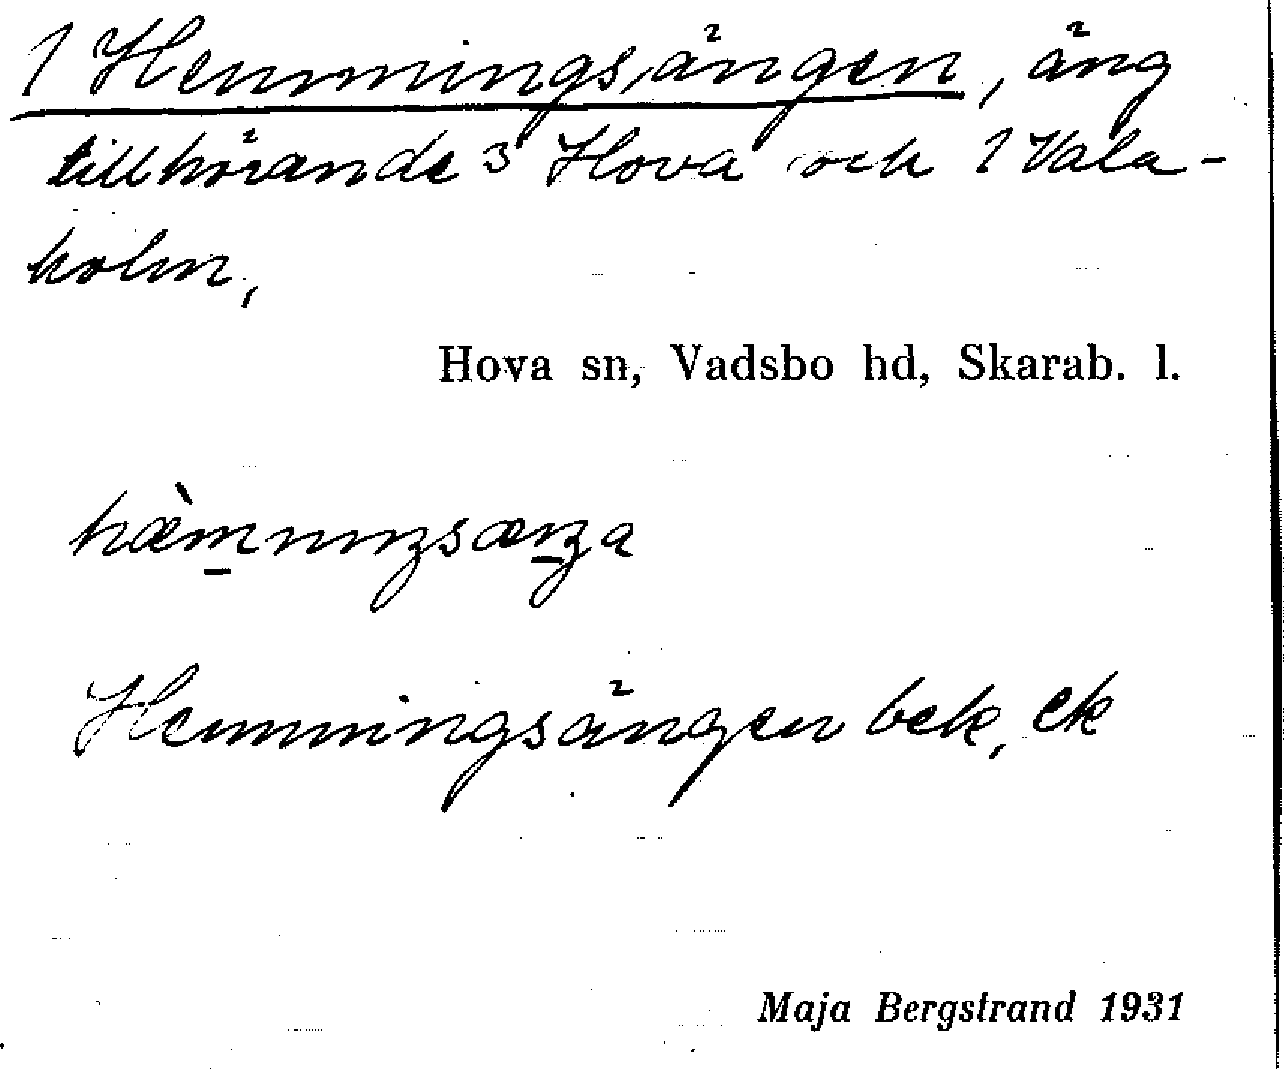 1 Hemmingsängen, äng
tillhörande 3 Hova och 1 Vala-
holm,
Hova sn, Vadsbo hd, Skarab. l.
hæ̀mmıŋsæŋa
Hemmingsängen bek, ek
Maja Bergstrand 1931